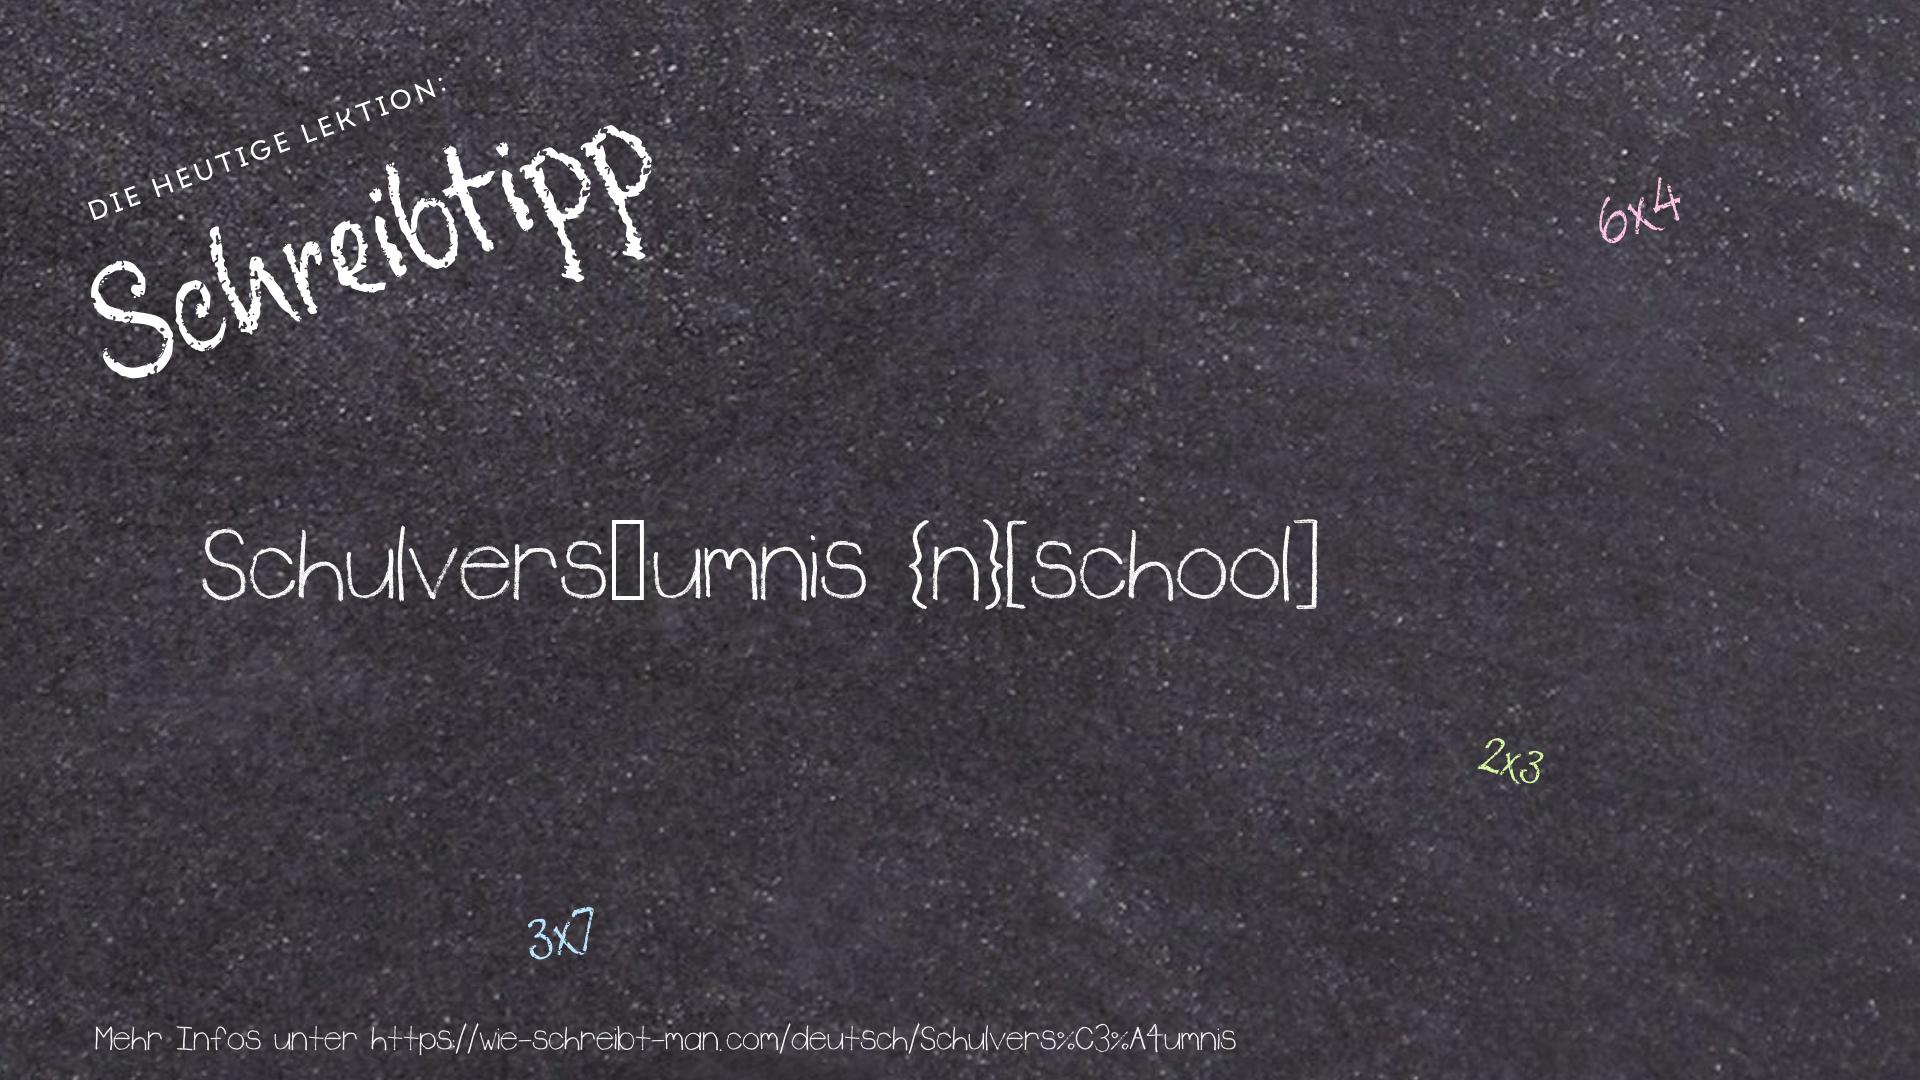 DIE HEUTIGE LEKTION:
Schreibtipp
6x4
Schulvers▯umnis {n}[school]
2x3
3x7
Mehr Infos unter https://wie-schreibt-man.com/deutsch/Schulvers%C3%A4umnis